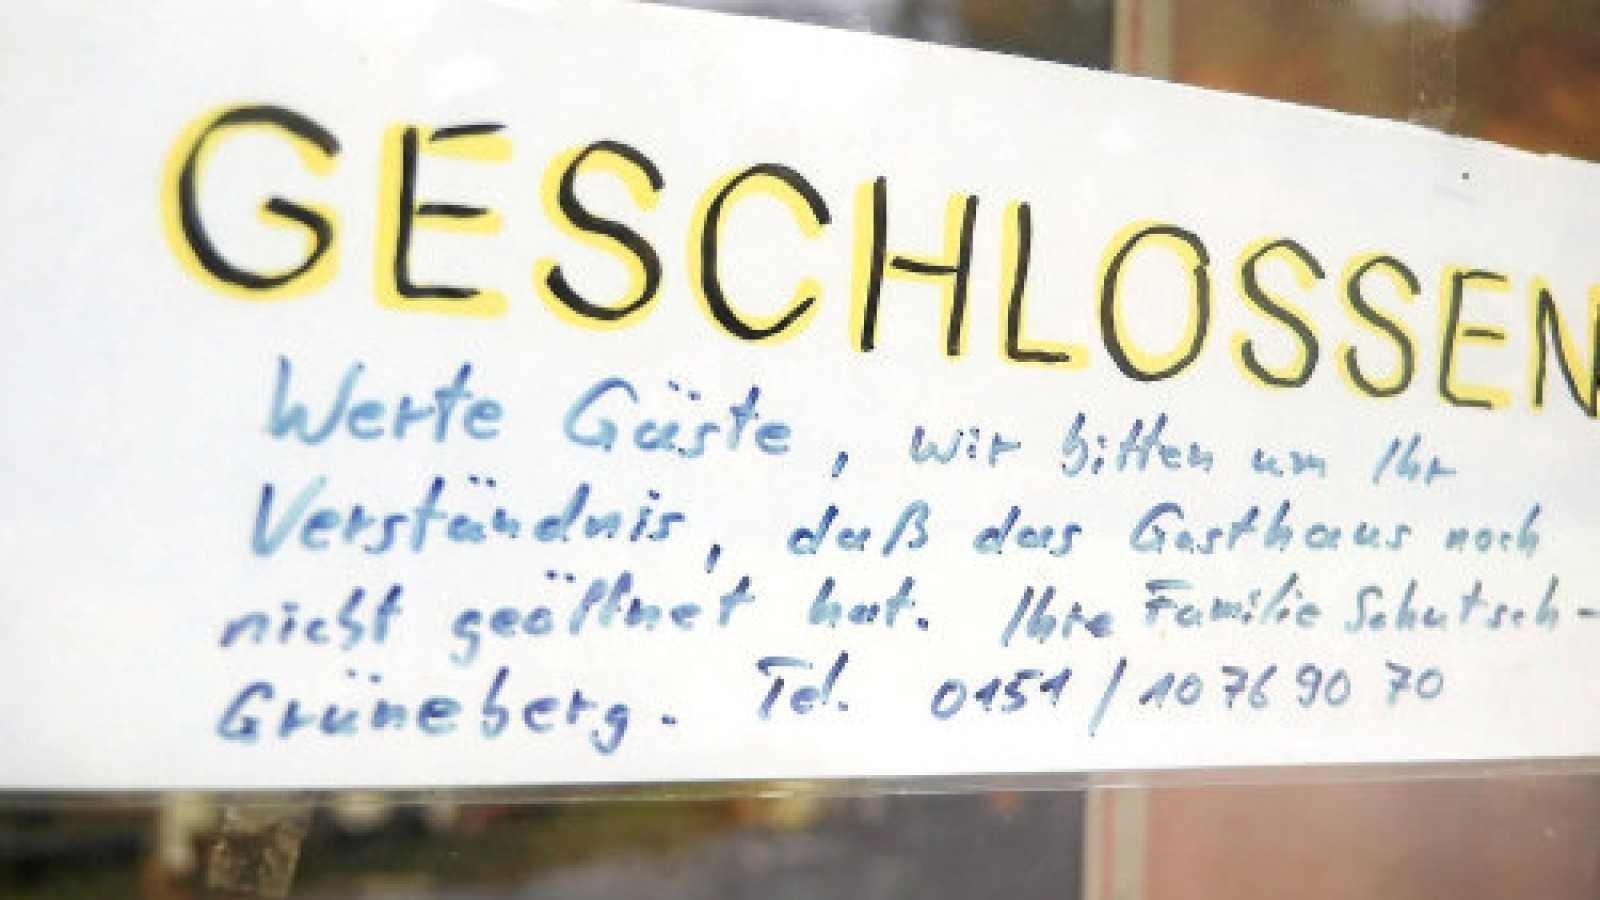 GESCHLOSSEN
Werte Gäste, wir bitten um Ihr
Verständnis, daß das Gasthaus noch
nicht geöffnet hat. Ihre Familie Schutsch-
Grüneberg. Tel. 0151/10 76 90 70